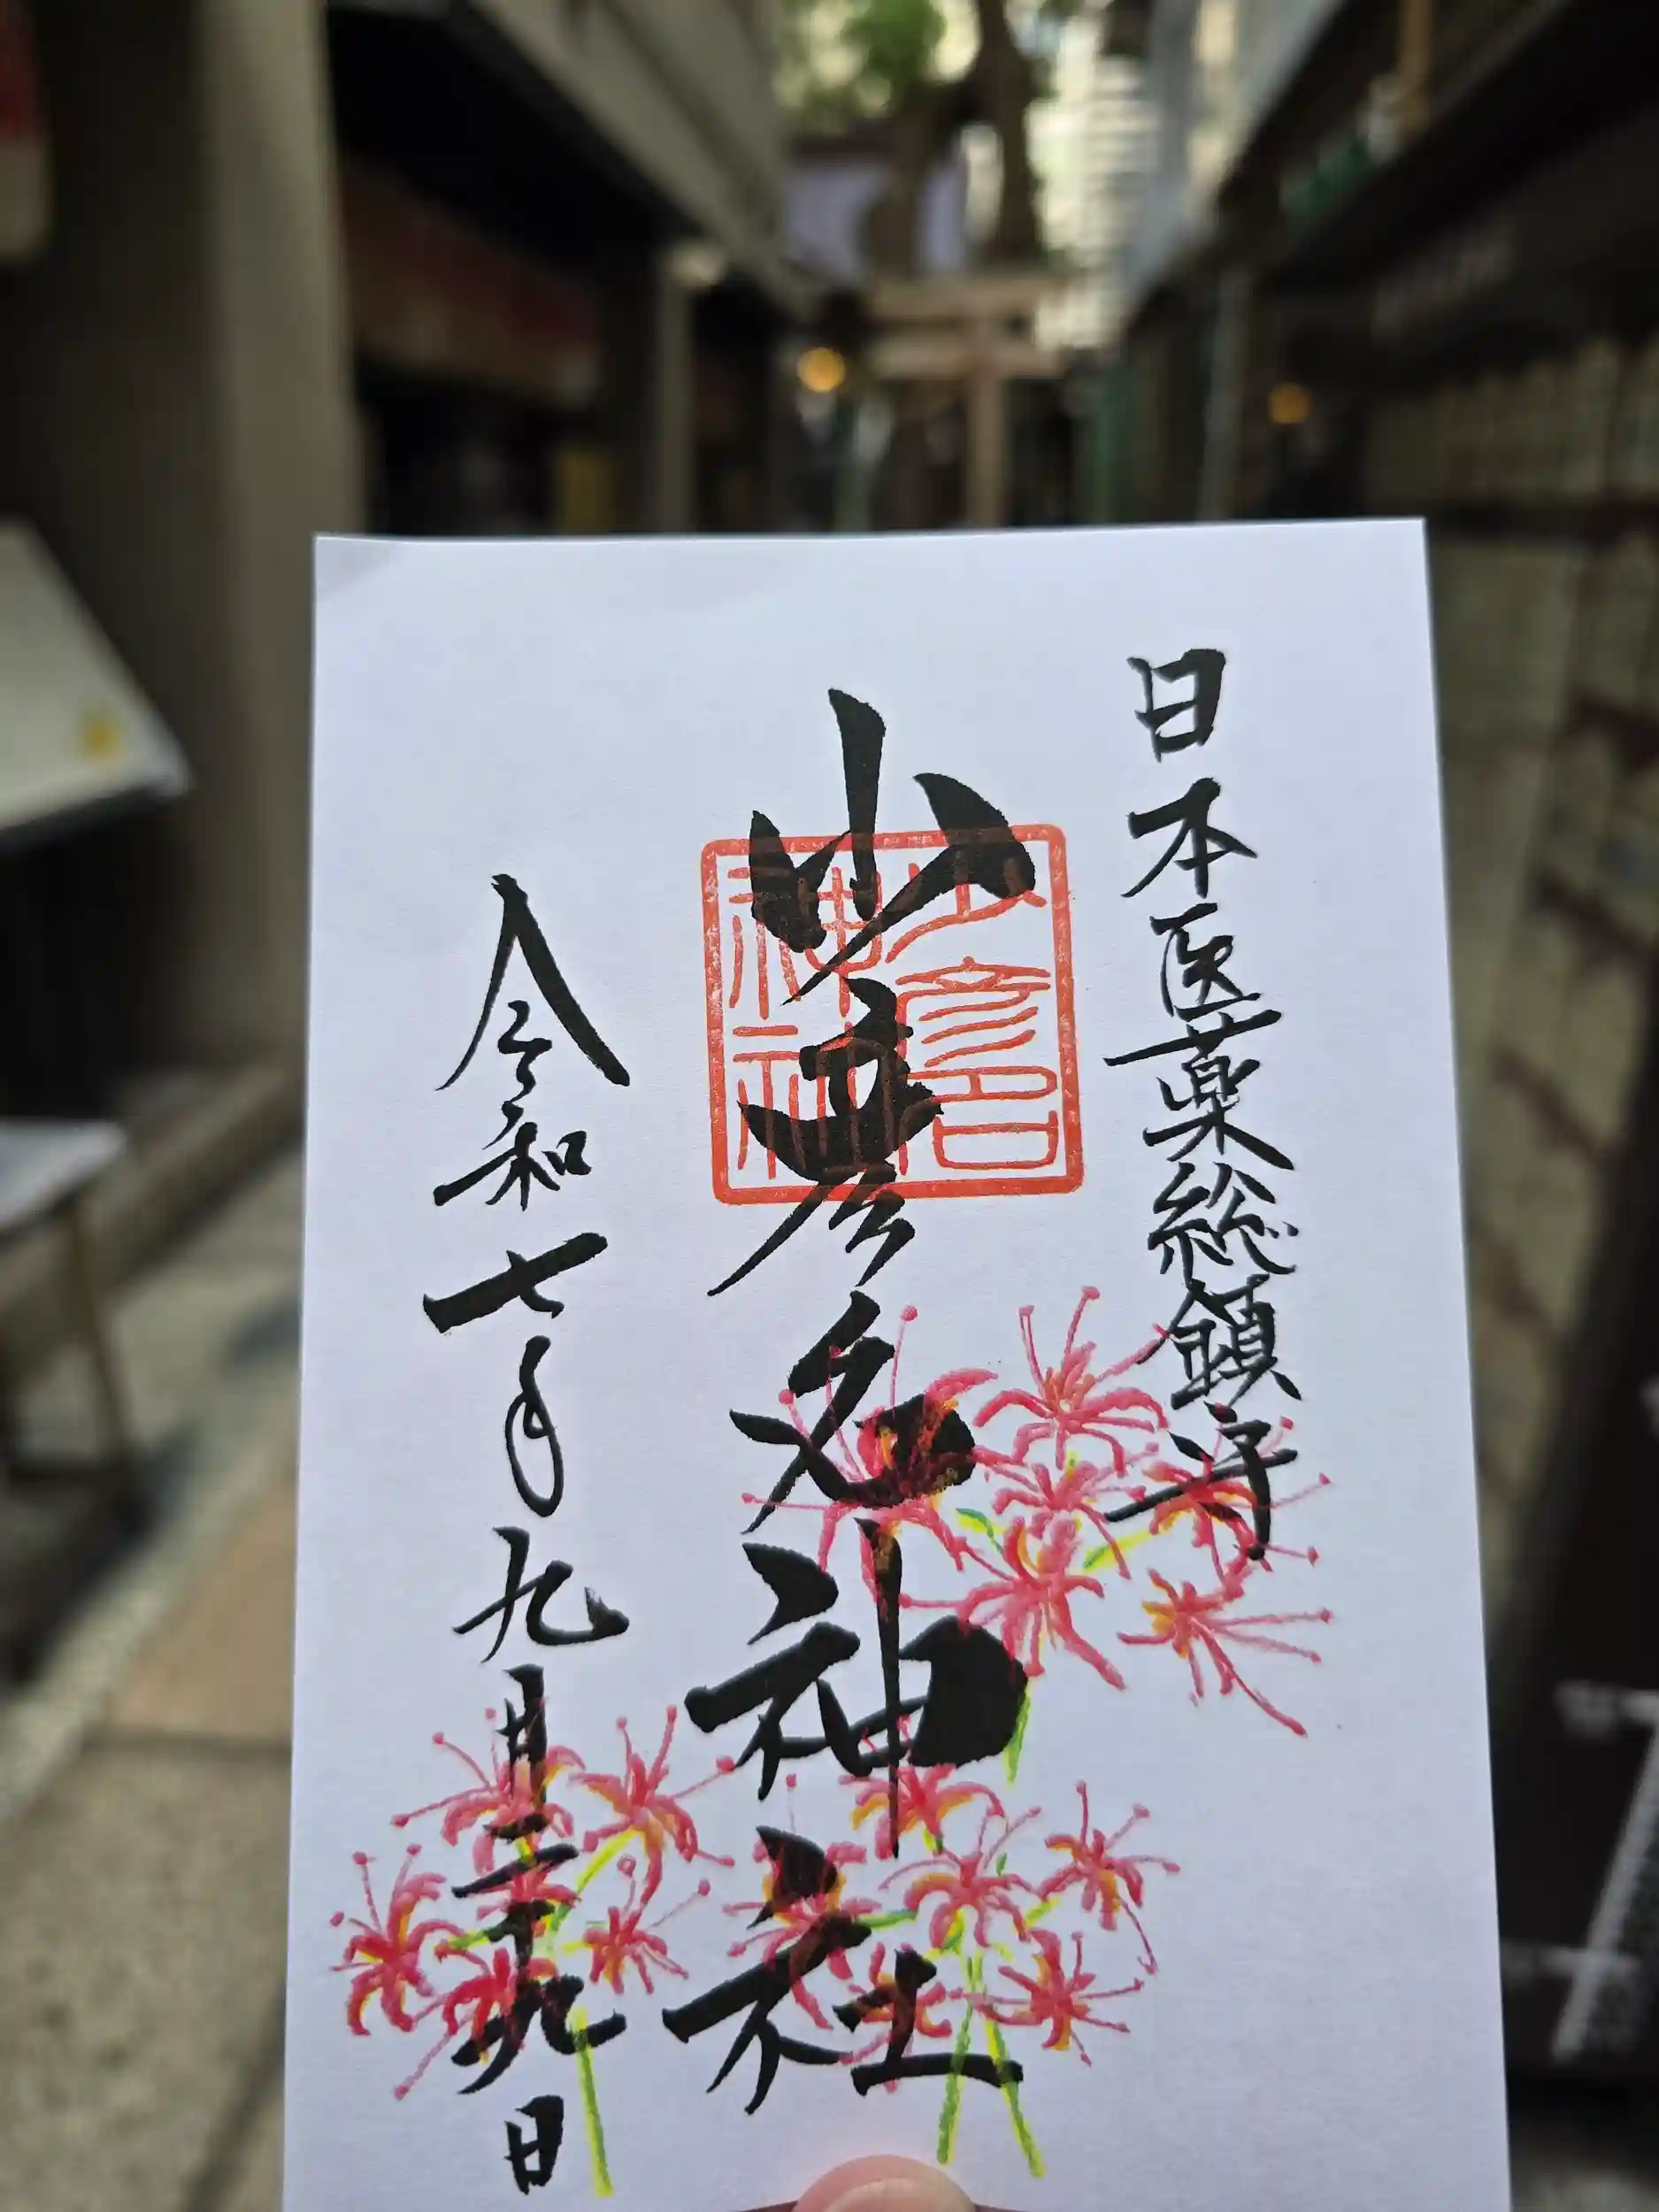 日本医薬総鎮守
少彦名神社
少彦名
神社
令和七年九月二十九日